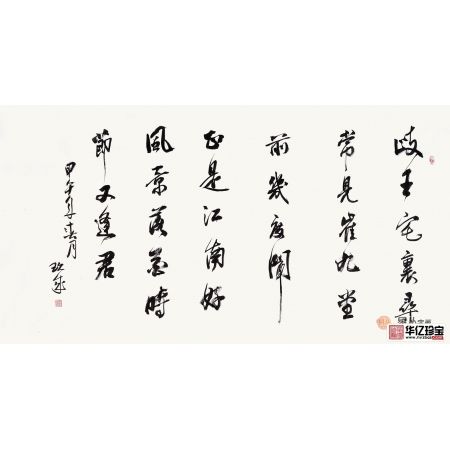 歧王宅裏尋
常見崔九堂
前幾度聞
正是江南好
風景落花時
節又逢君
甲午年春月
华亿珍宝